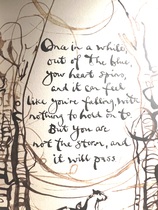 Once in a while,
out of the blue,
your heart spins,
and it can feel
like you're falling with
nothing to hold on to
But you are
not the storm, and
it will pass